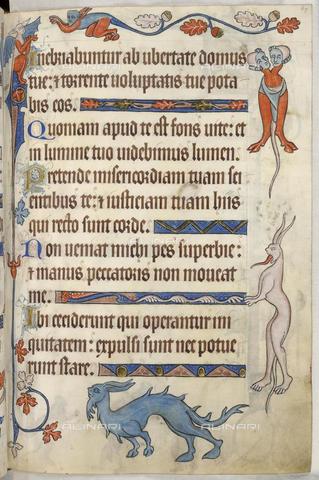 Inebriabuntur ab ubertate domus
tue: & torrente voluptatis tue pota
bis eos.
Quoniam apud te est fons uite: et
in lumine tuo uidebimus lumen.
Pretende misericordiam tuam sci
entibus te: & iusticiam tuam hiis
qui recto sunt corde.
Non ueniat michi pes superbie:
& manus peccatoris non moueat
me.
Ibi ceciderunt qui operantur ini
quitatem: expulsi sunt nec potue
runt stare.
ALINARI
ALINARI